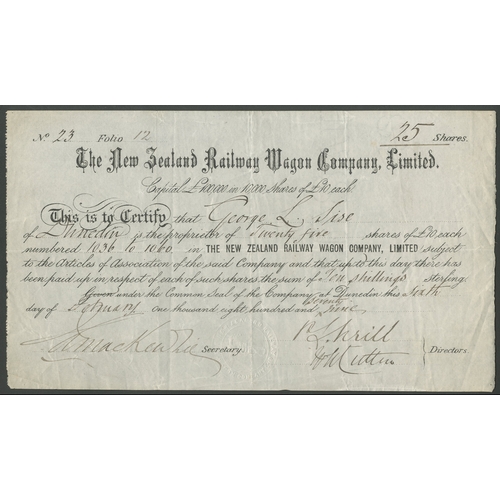 No. 23 Folio 12 25 Shares.
The New Zealand Railway Wagon Company, Limited.
Capital £100,000 in 10,000 Shares of £10 each
This is to Certify that George L. Sise
of Dunedin is the proprietor of Twenty five shares of £10 each
numbered 1636 to 1660 in THE NEW ZEALAND RAILWAY WAGON COMPANY, LIMITED subject
to the Articles of Association of the said Company and that up to this day there has
been paid up in respect of each of such shares, the sum of Ten shillings sterling
Given under the Common Seal of the Company at Dunedin this
day of February one thousand eight hundred and
Secretary. Directors.